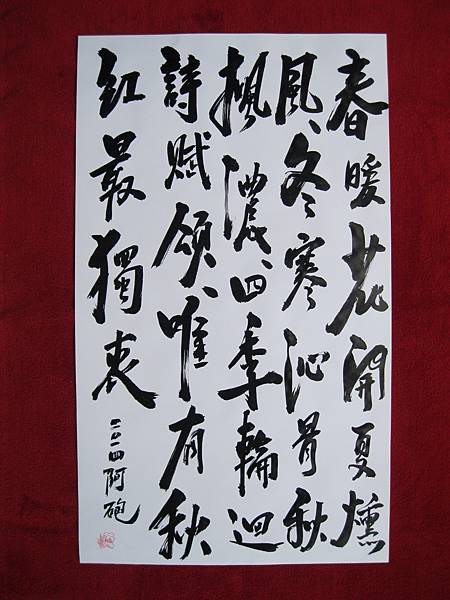 春暖花開夏燻
風、冬寒沁骨秋
楓濃、四季輪迴
詩賦頌、唯有秋
紅最獨衷
二〇一四阿砲